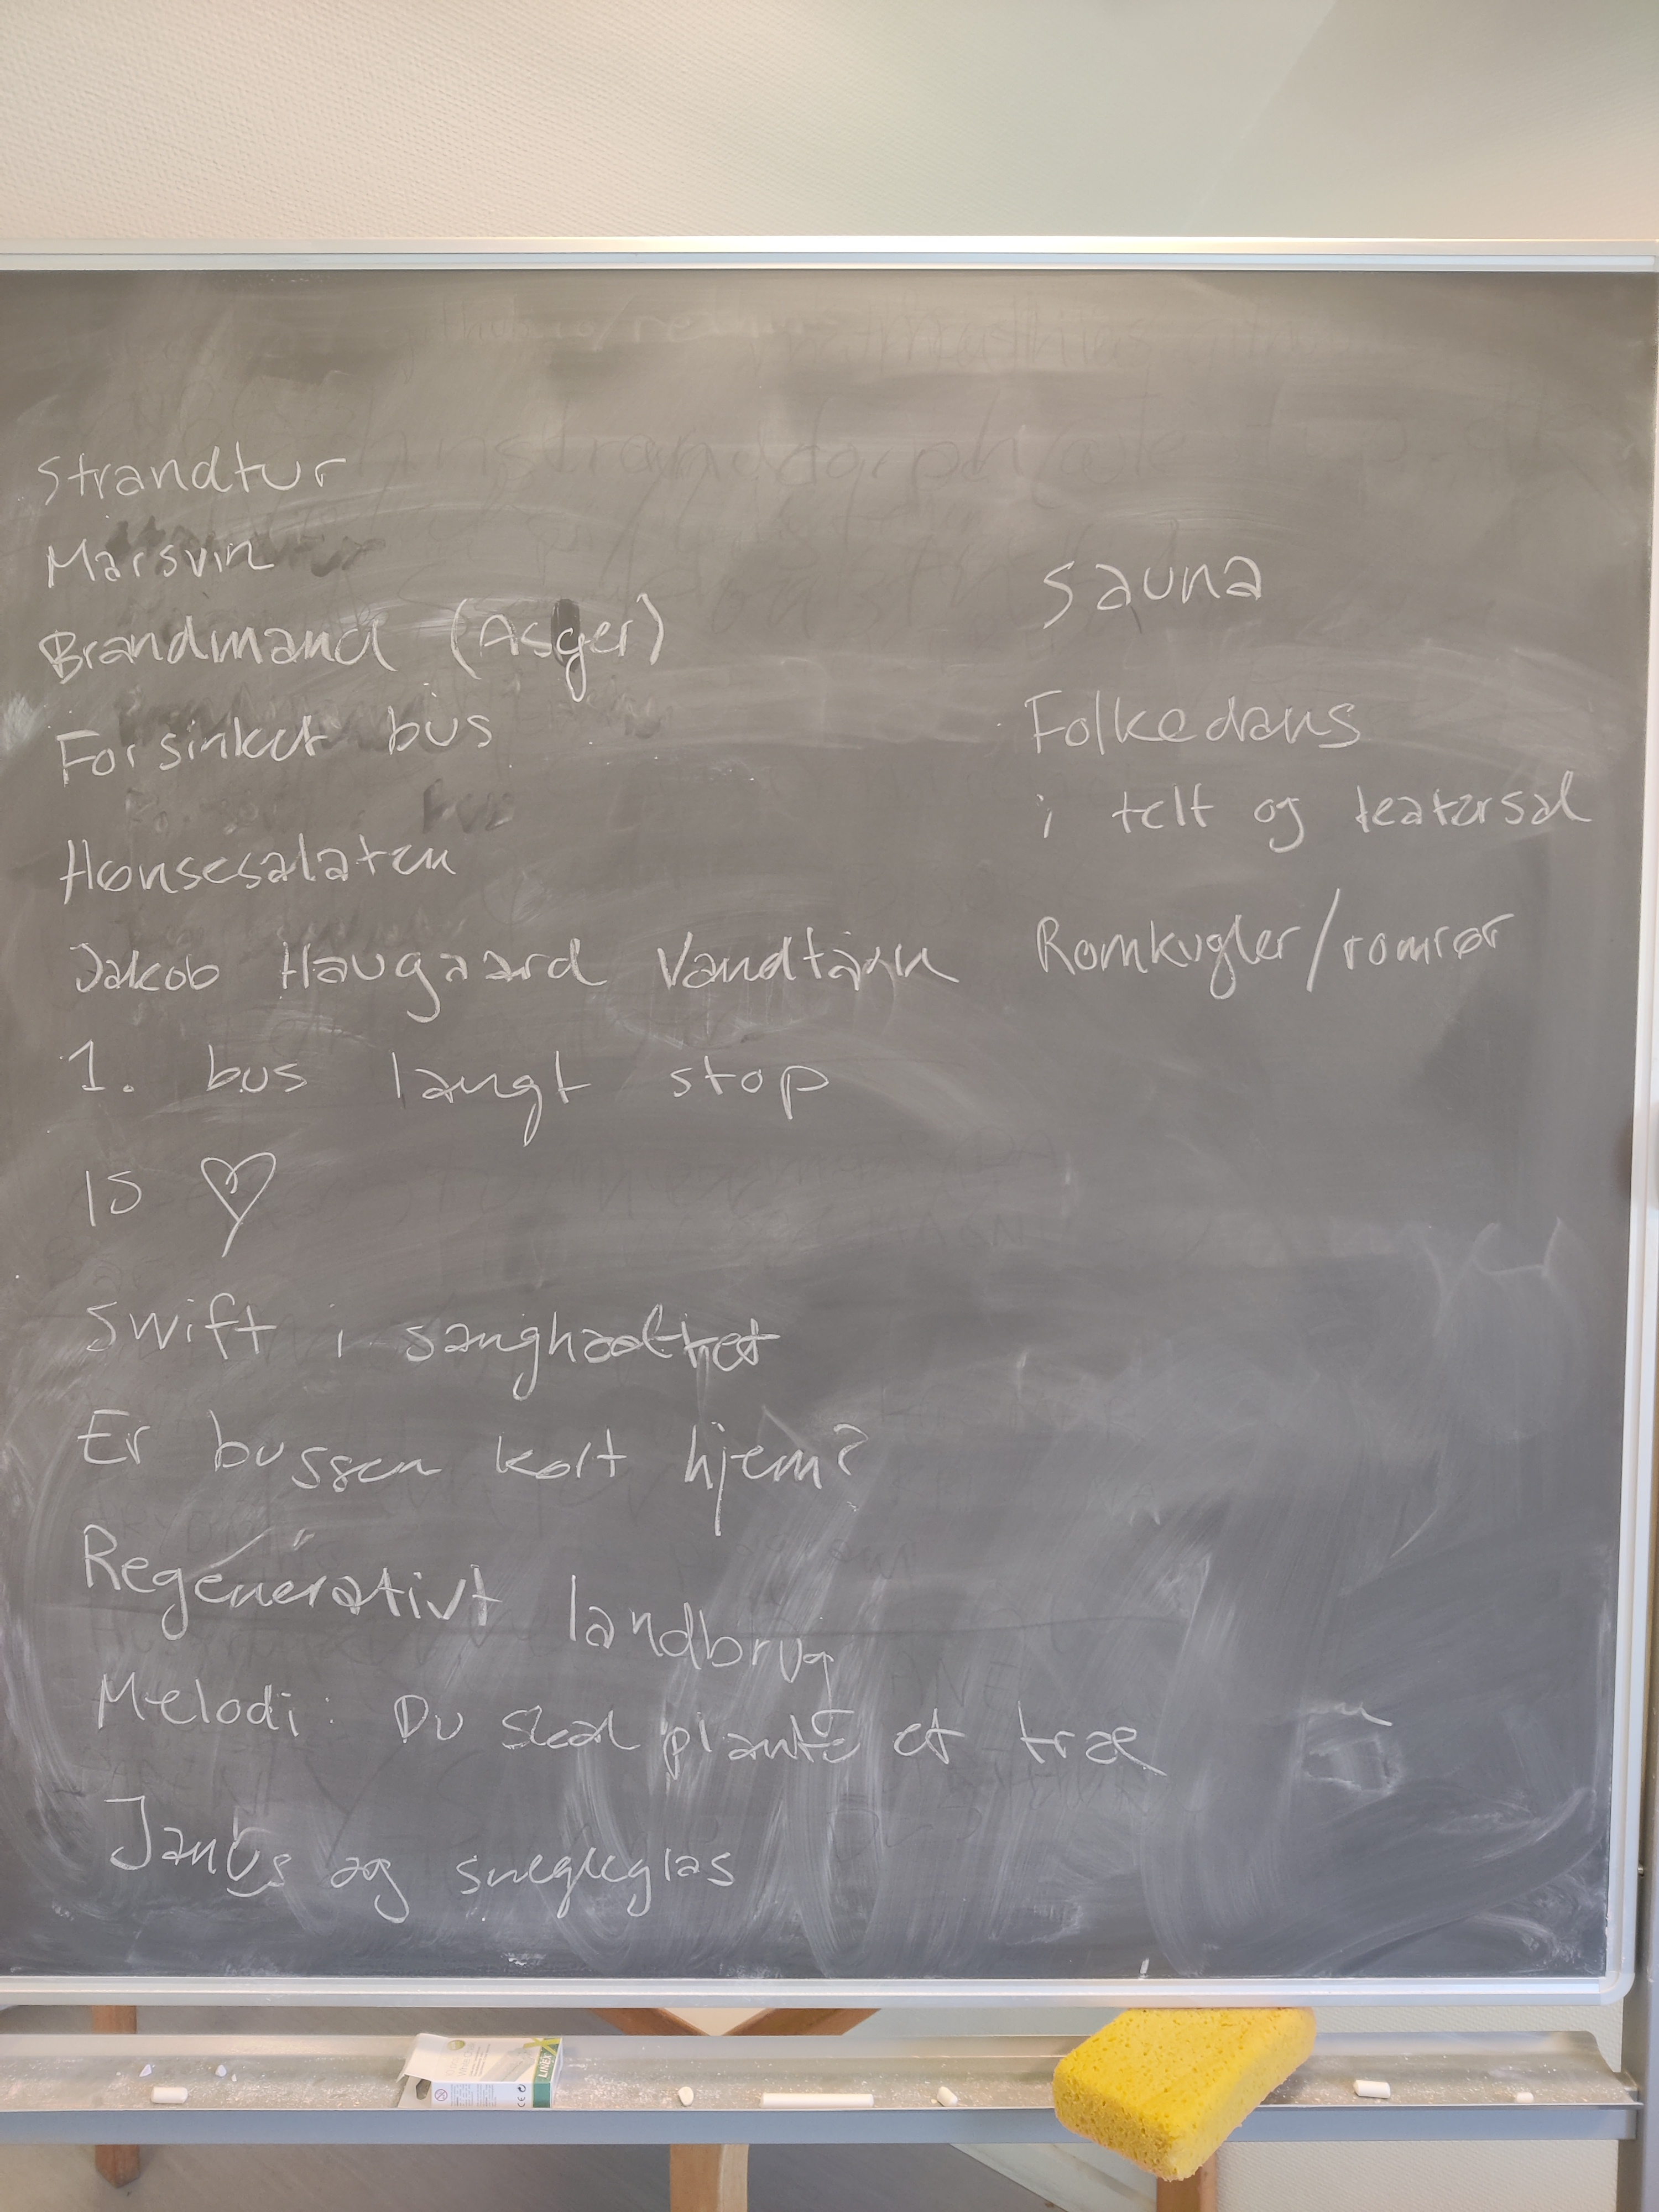 Strandtur
Marsvin
Brandmand (Asger)
Forsinket bus
Hønsesalaten
Jakob Haugaard Vandtårn
1. bus langt stop
IS ♡
Swift i sanghæftet
Er bussen kørt hjem?
Regenerativt landbrug
Melodi: Du skal plante et træ
Janus og snegleglas
Sauna
Folkedans
i telt og teatersal
Romkugler/romrør
LINEX
CE